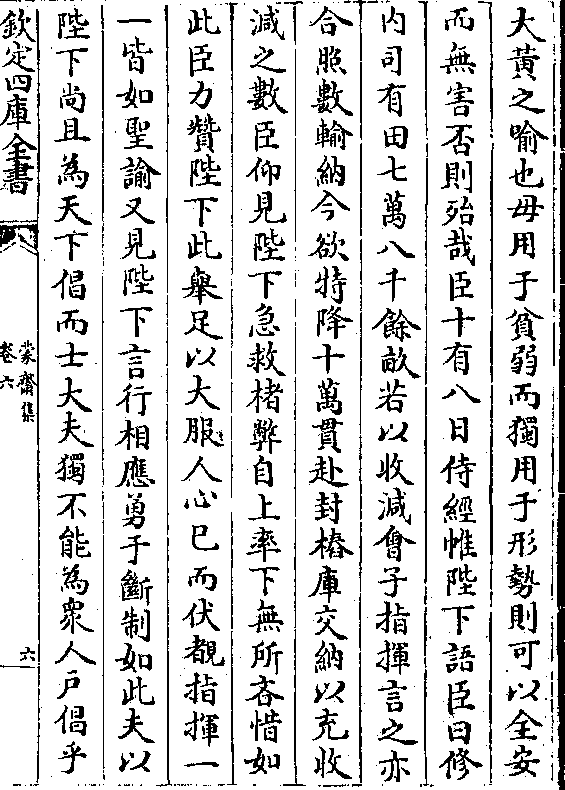 大黃之喻也毋用于貧弱而獨用于形勢則可以全安
而無害否則殆哉臣十有八日侍經帷陛下語臣曰修
内司有田七萬八千餘畝若以收減㑹子指揮言之亦
合照數輸納今欲特降十萬貫赴封樁庫交納以充收
減之數臣仰見陛下急救楮弊自上率下無所吝惜如
此臣力贊陛下此舉足以大服人心已而伏覩指揮一
一皆如聖諭又見陛下言行相應勇于斷制如此夫以
陛下尚且為天下倡而士大夫獨不能為衆人戸倡乎
欽定四庫全書
蒙齋集
卷六
六